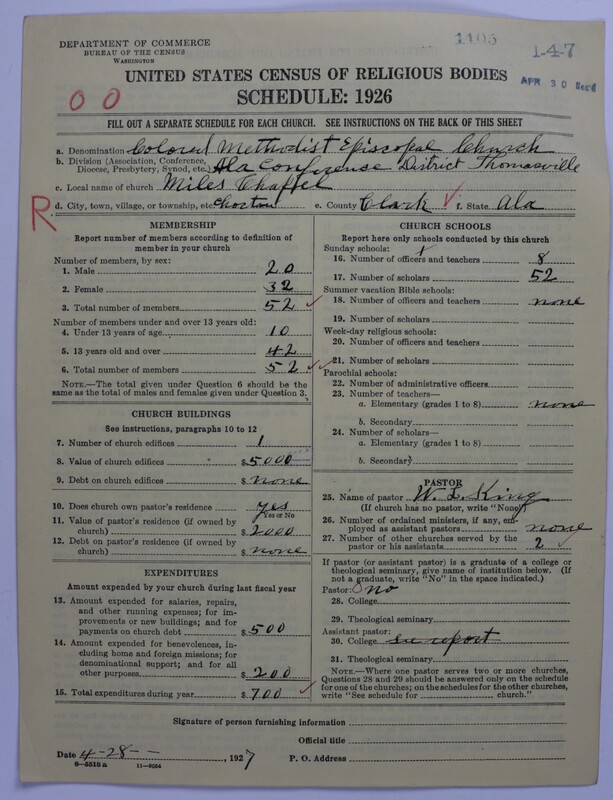 DEPARTMENT OF COMMERCE
BUREAU OF THE CENSUS
WASHINGTON
1103
1-4-7
APR 30
UNITED STATES CENSUS OF RELIGIOUS BODIES
SCHEDULE: 1926
0 0
FILL OUT A SEPARATE SCHEDULE FOR EACH CHURCH. SEE INSTRUCTIONS ON THE BACK OF THIS SHEET
a. Denomination Colored Methodist Episcopal Church
b. Division (Association, Conference,
Diocese, Presbytery, Synod, etc.) Ala Conference District Thomasville
c. Local name of church Miles Chappel
R
d. City, town, village, or township, etc. Choctaw e. County Clark f. State Ala
MEMBERSHIP
Report number of members according to definition of
member in your church
Number of members, by sex:
1. Male 20
2. Female 32
3. Total number of members 52
Number of members under and over 13 years old:
4. Under 13 years of age 10
5. 13 years old and over 42
6. Total number of members 52
NOTE.—The total given under Question 6 should be
the same as the total of males and females given under Question 3.
CHURCH BUILDINGS
See instructions, paragraphs 10 to 12
7. Number of church edifices 1
8. Value of church edifices $ 5000
9. Debt on church edifices $ None
10. Does church own pastor's residence yes
Yes or No
11. Value of pastor's residence (if owned by
church) $ 2000
12. Debt on pastor's residence (if owned by
church) $ none
EXPENDITURES
Amount expended by your church during last fiscal year
13. Amount expended for salaries, repairs,
and other running expenses; for im-
provements or new buildings; and for
payments on church debt $ 500
14. Amount expended for benevolences, in-
cluding home and foreign missions; for
denominational support; and for all
other purposes $ 200
15. Total expenditures during year $ 700
CHURCH SCHOOLS
Report here only schools conducted by this church
Sunday schools: 1
16. Number of officers and teachers 8
17. Number of scholars 52
Summer vacation Bible schools:
18. Number of officers and teachers none
19. Number of scholars
Week-day religious schools:
20. Number of officers and teachers
21. Number of scholars
Parochial schools:
22. Number of administrative officers
23. Number of teachers—
a. Elementary (grades 1 to 8) none
b. Secondary
24. Number of scholars—
a. Elementary (grades 1 to 8)
b. Secondary
PASTOR
25. Name of pastor W. L. King
(If church has no pastor, write "None")
26. Number of ordained ministers, if any, em-
ployed as assistant pastors none
27. Number of other churches served by the
pastor or his assistants 2
If pastor (or assistant pastor) is a graduate of a college or
theological seminary, give name of institution below. (If
not a graduate, write "No" in the space indicated.)
Pastor: no
28. College
29. Theological seminary
Assistant pastor:
30. College see report
31. Theological seminary
NOTE.—Where one pastor serves two or more churches,
Questions 28 and 29 should be answered only on the schedule
for one of the churches; on the schedules for the other churches,
write "See schedule for church."
Signature of person furnishing information
Official title
Date 4-28-- , 1927 P. O. Address
8-5518 a 11-9564